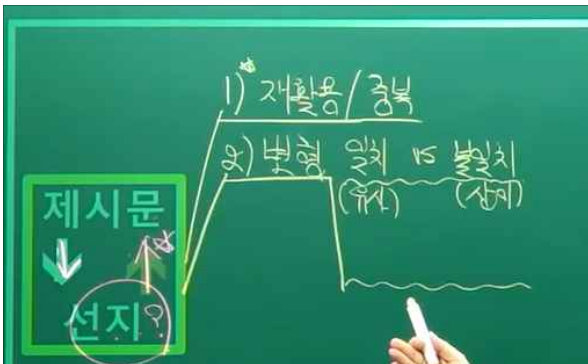 1) 재활용/중복
2) 변형 일치 vs 불일치
(유사) (상이)
제시문
선지?